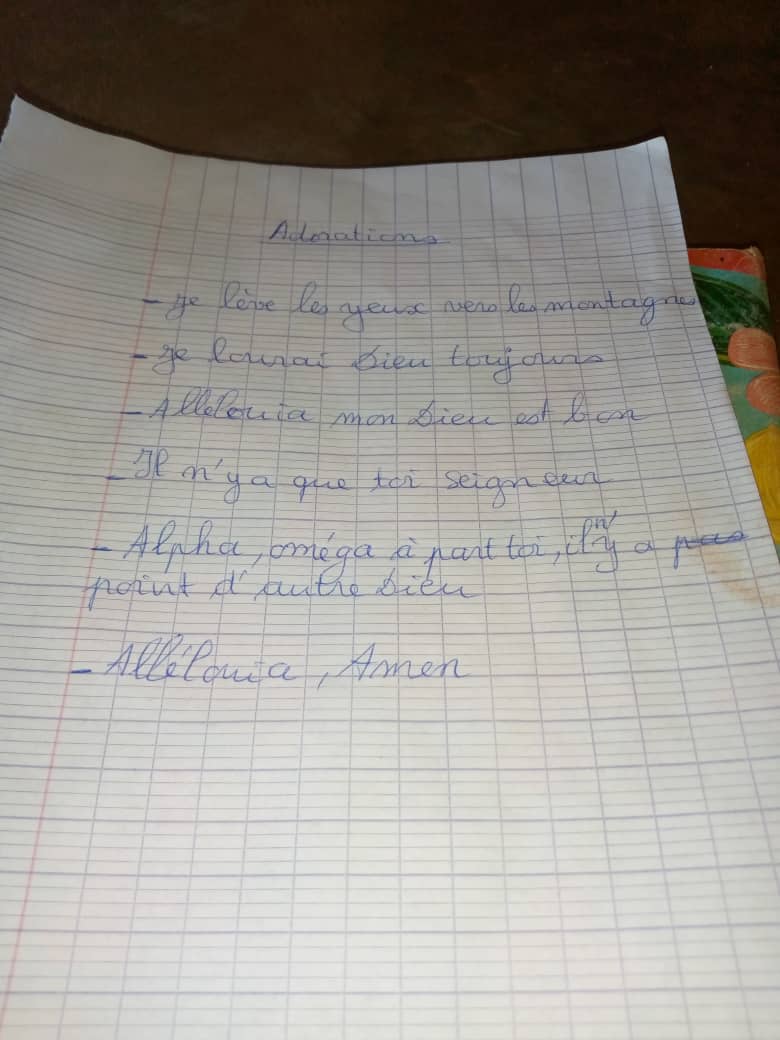 Adorations
- Je lève les yeux vers les montagnes
- Je lourai Dieu toujours
- Allélouia mon Dieu est bon
- Il n'ya que toi seigneur
- Alpha, oméga à part toi, il n'y a pas
point d'autre Dieu
- Allélouia, Amen